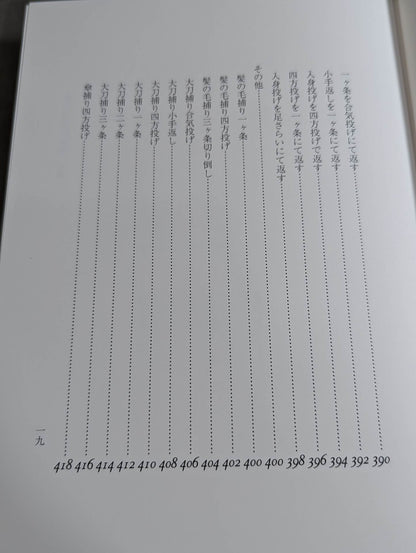 一ヶ条を合気投げにて返す……390
小手返しを一ヶ条にて返す……392
入身投げを四方投げで返す……394
四方投げを一ヶ条にて返す……396
入身投げを足さらいにて返す……398
その他……400
髪の毛捕り一ヶ条……400
髪の毛捕り四方投げ……402
髪の毛捕り三ヶ条切り倒し……404
太刀捕り合気投げ……406
太刀捕り小手返し……408
太刀捕り四方投げ……410
太刀捕り一ヶ条……412
太刀捕り二ヶ条……414
太刀捕り三ヶ条……416
傘捕り四方投げ……418
一九